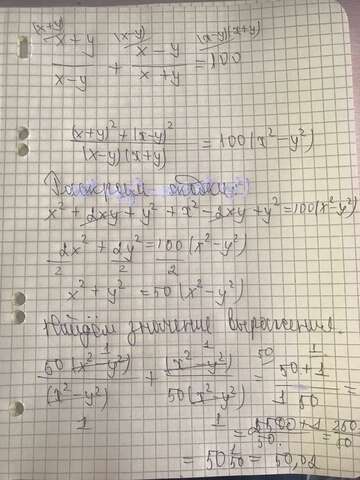 (x+y) (x-y) (x-y)(x+y)
x+y / x-y + x-y / x+y = 100
(x+y)² + (x-y)² / (x-y)(x+y) = 100(x²-y²)
Раскроем скобки:
x² + 2xy + y² + x² - 2xy + y² = 100(x²-y²)
2x²/2 + 2y²/2 = 100/2 (x²-y²)
x² + y² = 50(x²-y²)
Найдём значение выражения.
50(x²-y²) / (x²-y²) + (x²-y²) / 50(x²-y²) = 50/1 + 1/50 =
= 2500+1 / 50 =
= 50 1/50 = 50,02